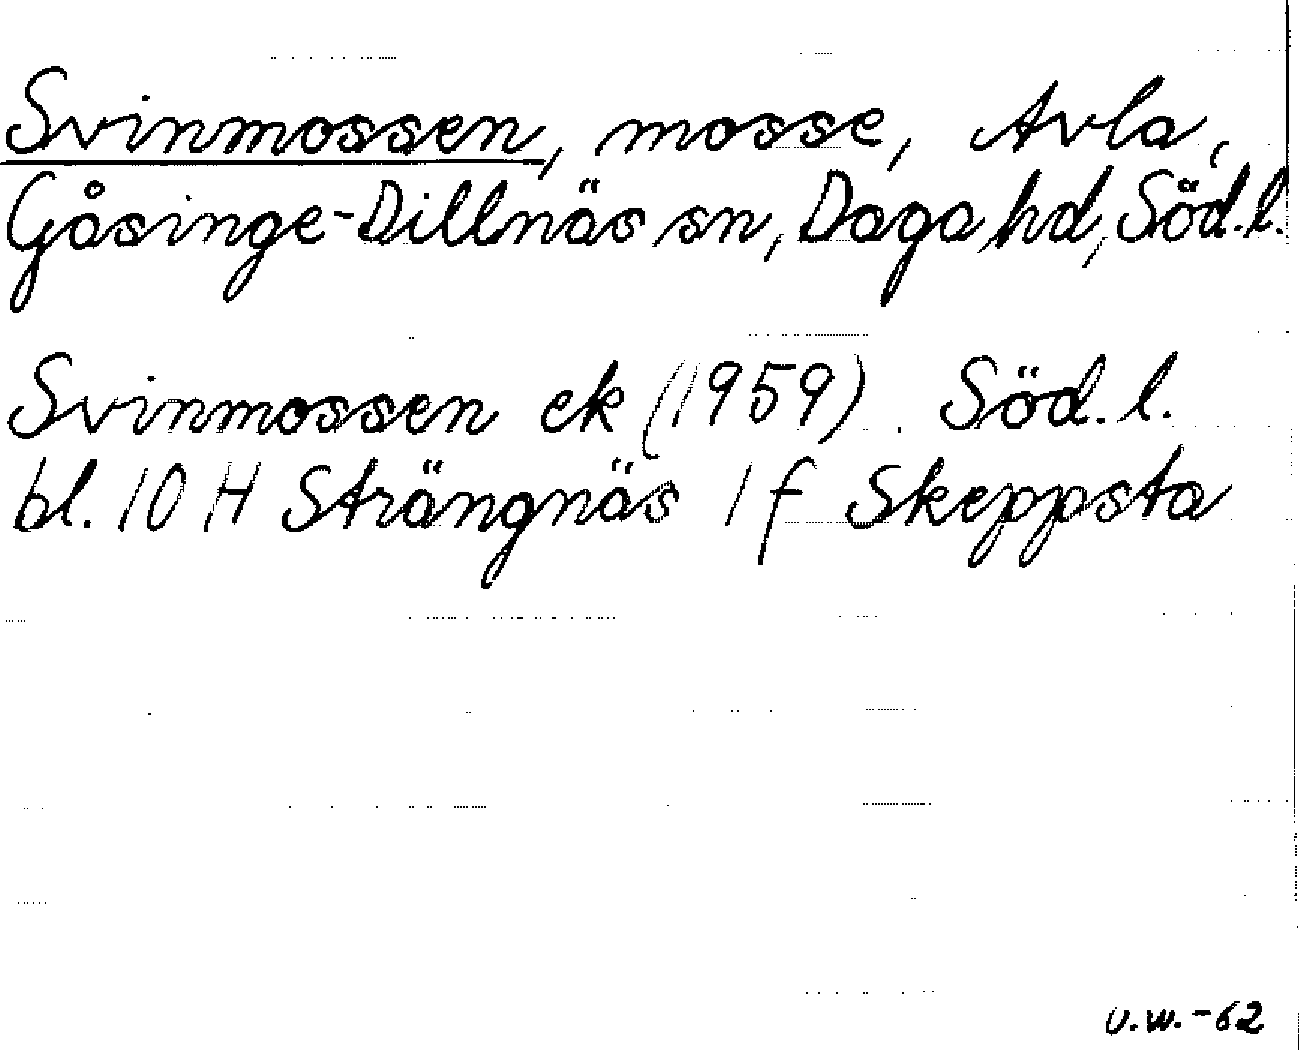 Svinmossen, mosse, Avla,
Gåsinge-Dillnäs sn, Daga hd, Söd.l.
Svinmossen ek (1959). Söd.l.
bl. 10 H Strängnäs 1 f Skeppsta
U.W.-62